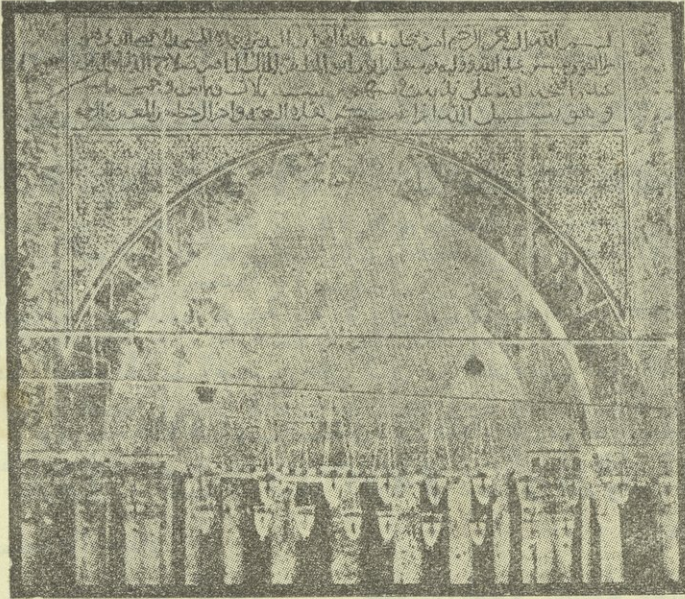 بسم الله الرحمن الرحيم امر بتجديد هذا المحراب المقدس وعمارة المسجد الاقصى الذي هو
على التقوى مؤسس عبد الله ووليه يوسف بن ايوب ابو المظفر الملك الناصر صلاح الدنيا والدين
عندما فتحه الله على يديه في شهور سنة ثلاث وثمانين وخمس مائة
وهو يسأل الله ايزاعه شكر هذه النعمة واجزال حظه من المغفرة والرحمة